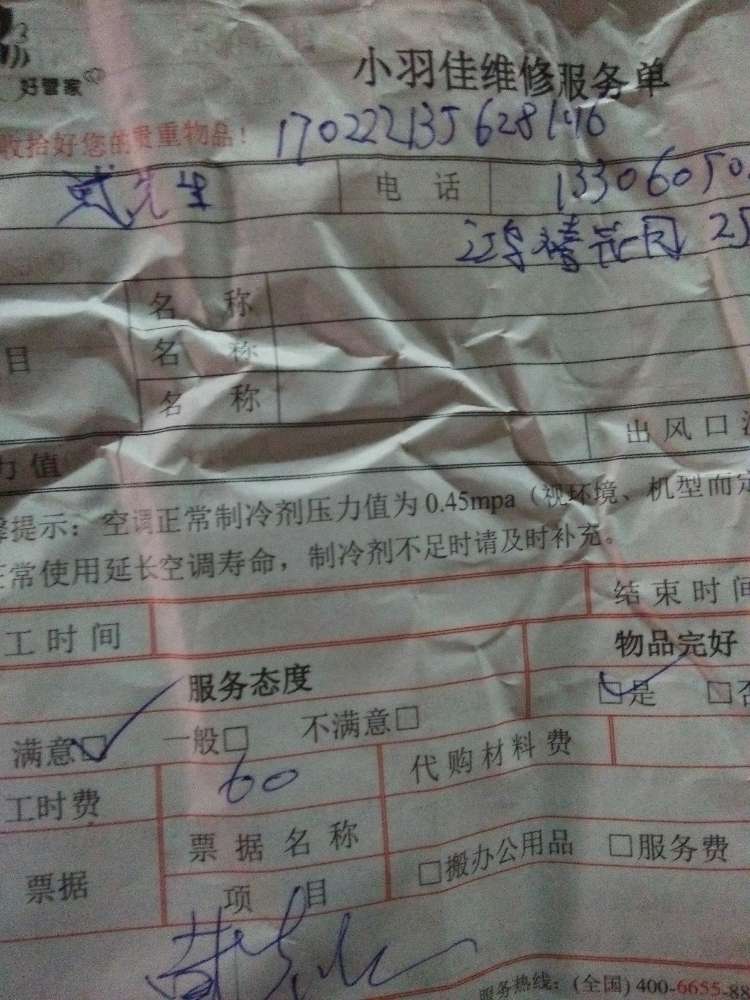 好管家
小羽佳维修服务单
收拾好您的贵重物品！
17022213562811.16
先生 电话 1330605
花园 25
名称
目 名称
名称
力值 出风口
提示：空调正常制冷剂压力值为0.45mpa（视环境、机型而定
正常使用延长空调寿命，制冷剂不足时请及时补充。
工时间 结束时间
服务态度 物品完好
满意□ 一般□ 不满意□ □是 □否
工时费 60 代购材料费
票据 票据名称 □搬办公用品 □服务费
项目
服务热线：（全国）400-6655-88